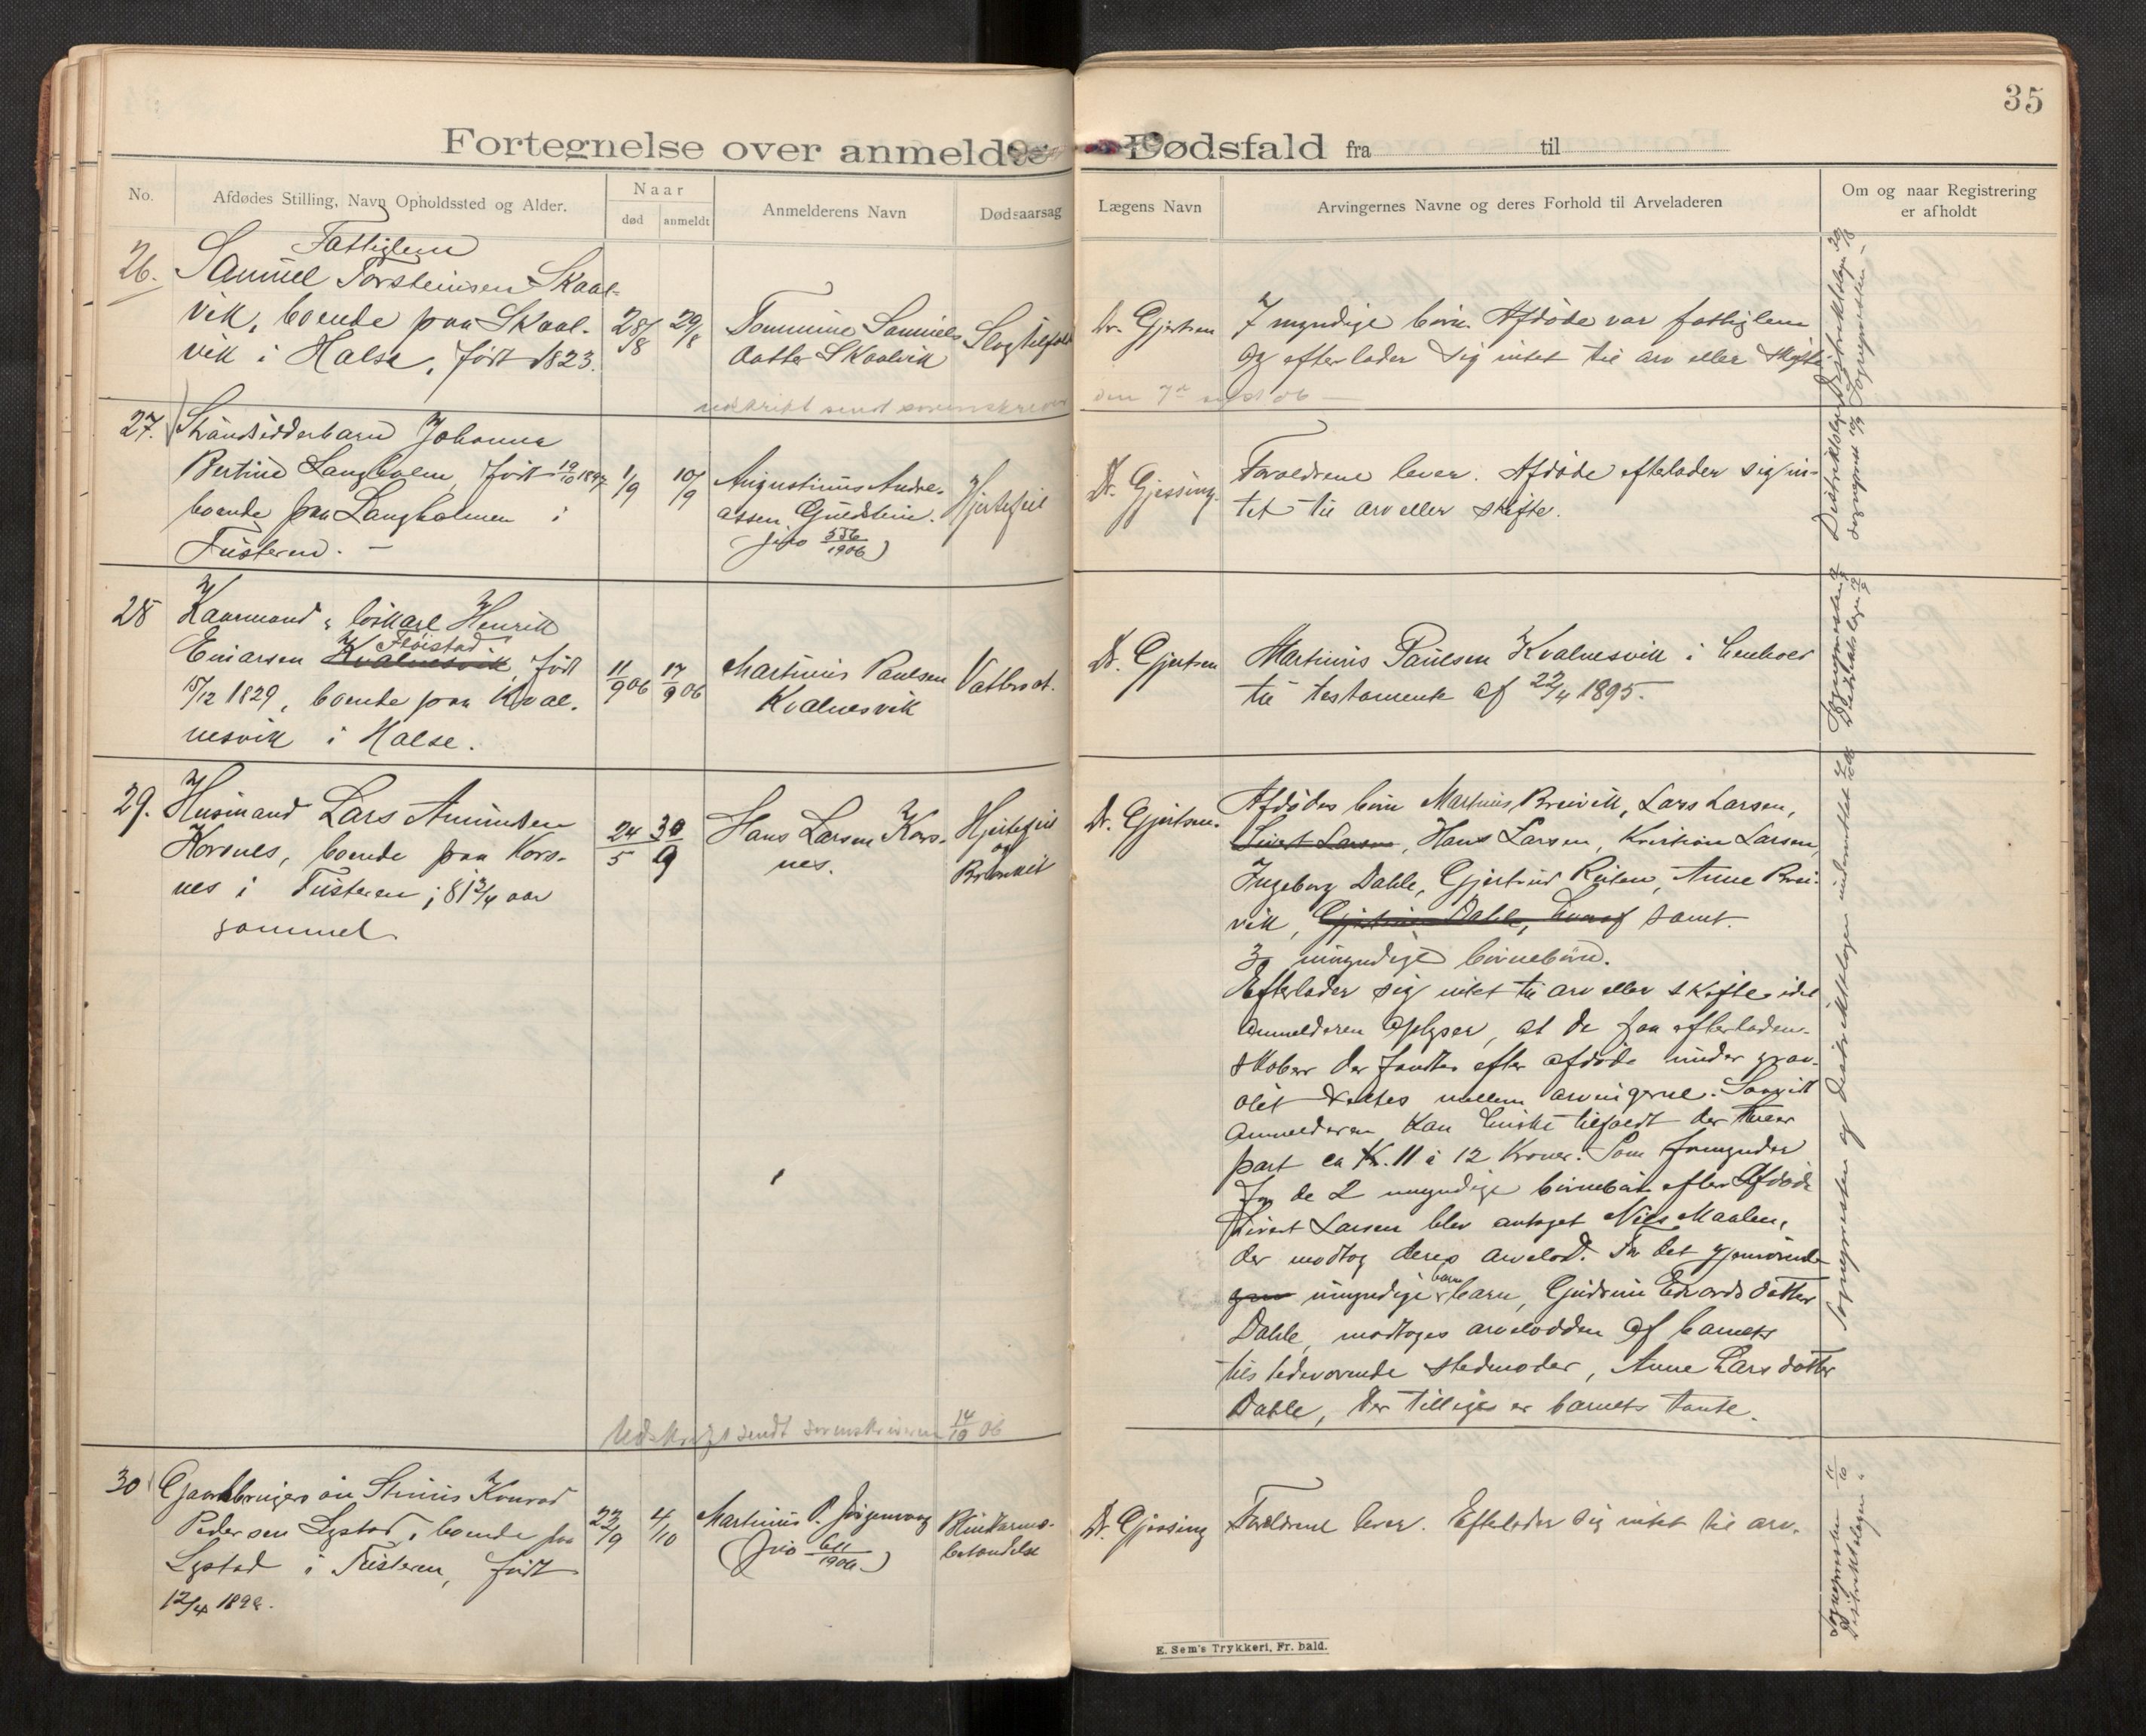 35
Fortegnelse over anmeldte Dødsfald fra til
No.
Afdødes Stilling, Navn Opholdssted og Alder.
Naar
død
anmeldt
Anmelderens Navn
Dødsaarsag
Lægens Navn
Arvingernes Navne og deres Forhold til Arveladeren
Om og naar Registrering
er afholdt
26.
Fattiglem
Samuel Torsteinsen Skaal-
vik, boende paa Skaal-
vik i Halse, født 1823.
28/8
29/8
Tommine Samuels
datter Skaalvik
Slagtilfæld
Dr. Gjertsen
7 myndige børn. Afdøde var fattiglem
og efterlader sig intet til arv eller skifte
27.
Strandsidderbarn Johanna
Bertine Langholm, født 19/10 1897
boende paa Langholmen i
Tusteren. –
1/9
10/9
Augustinus Andre-
assen Guldstein.
(jno 556/1906)
Hjertefeil
Dr. Gjessing
Forældrene lever. Afdøde efterlader sig in-
tet til arv eller skifte.
28
Kaarmand & løskarl Henrik
Fløistad
Einarsen Kvalnesvik, født
15/12 1829, boende paa Kval-
nesvik i Halse.
11/9 06
17/9 06
Martinus Paulsen
Kvalnesvik
Vatersot.
Dr. Gjertsen
Martinus Paulsen Kvalnesvik i henhold
til testamente af 22/4 1895.
29.
Husmand Lars Amundsen
Korsnes, boende paa Kors-
nes i Tusteren; 81 3/4 aar
gammel
24/5
30/9
Hans Larsen Kors-
nes.
Hjertefeil
og
Bronkit
Dr. Gjertsen.
Afdødes børn Martinus Breivik, Lars Larsen,
Sivert Larsen, Hans Larsen, Kristian Larsen,
Ingeborg Dahle, Gjertrud Reiten, Anne Brei-
vik, samt
3 umyndige børnebørn.
Efterlader sig intet til arv eller skifte idet
anmelderen oplyser, at de faa efterladen-
skaber der fandtes efter afdøde under grav-
ølet deltes mellem arvingerne. Saavidt
anmelderen kan huske tilfaldt der hver
part ca Kr. 11 à 12 Kroner. Som formynder
for de 2 umyndige børnebørn efter Afdøde
Sivert Larsen blev antaget Nils Maalen,
der modtog deres arvelod. For det gjenværende
umyndige barnebarn, Gudrun Edvardsdatter
Dahle, modtoges arvelodden af barnets
tilstedeværende stedmoder, Anne Larsdatter
Dahle, der tilliges er barnets tante.
Udskrift sendt sorenskriveren 14/10 06
30
Gaardbrugersøn Stinius Konrad
Pedersen Lystad, boende paa
Lystad i Tusteren, født
12/4 189
22/9
4/10
Martinus P. Jørgenvaag
(jno 611/1906)
Blindtarms-
betændelse
Dr. Gjessing
Forældrene lever. Efterlader sig intet til arv.
Sogneprsten 11/10
Distriktslægen "
E. Sem's Trykkeri, Fr. hald.